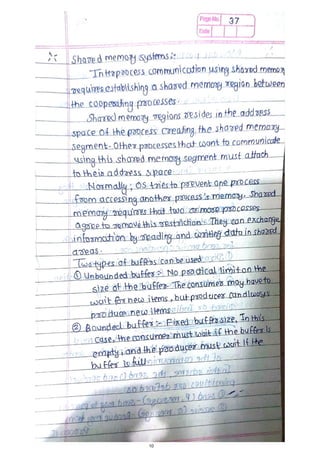 Page No. 37
Date
Shared memory systems :-
Interprocess communication using shared memory
requires establishing a shared memory region between
the cooperating processes.
Shared memory regions resides in the address
space of the process creating the shared memory
segment. Other processes that want to communicate
using this shared memory segment must attach
to their address space
Normally, OS tries to prevent one process
from accessing another process's memory. Shared
memory requires that two or more processes
agree to remove this restriction. They can exchange
information by reading and writing data in shared
areas.
Two types of buffers can be used
① Unbounded buffer :- No practical limit on the
size of the buffer. The consumer may have to
wait for new items, but producer can always
produce new items
② Bounded buffer :- Fixed buffer size. In this
case, the consumer must wait if the buffer is
empty, and the producer must wait if the
buffer is full
10